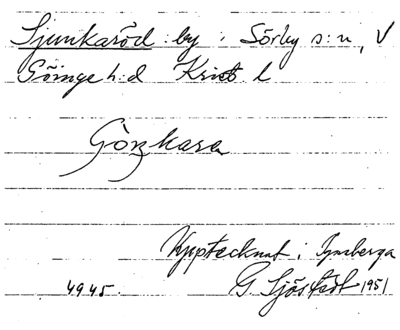 Sjunkaröd by, Sörby s:n, V
Göinge h:d Krist l
Upptecknat i
4945. G. Sjöstedt 1951